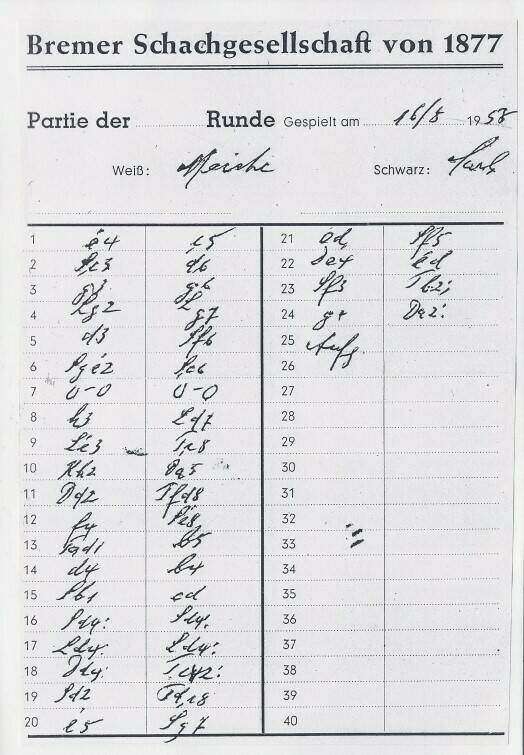 Bremer Schachgesellschaft von 1877
Partie der Runde Gespielt am 16/8 1958
Weiß: Schwarz:
1 e4 c5
2 Sc3 d6
3 g3 g6
4 Lg2 Lg7
5 d3 Sf6
6 Sge2 Sc6
7 0-0 0-0
8 h3 Ld7
9 Le3 Tc8
10 Kh2 Da5
11 Dd2 Tfd8
12 f4 Se8
13 Tad1 b5
14 d4 b4
15 Sb1 cd
16 Sd4: Sd4:
17 Ld4: Ld4:
18 Dd4: Tc2:
19 Sd2 Tdc8
20 e5 Sg7
21 ed Sf5
22 De4 ed
23 Sf3 Tb2:
24 g4 Da2:
25 Aufg
26
27
28
29
30
31
32
33
34
35
36
37
38
39
40